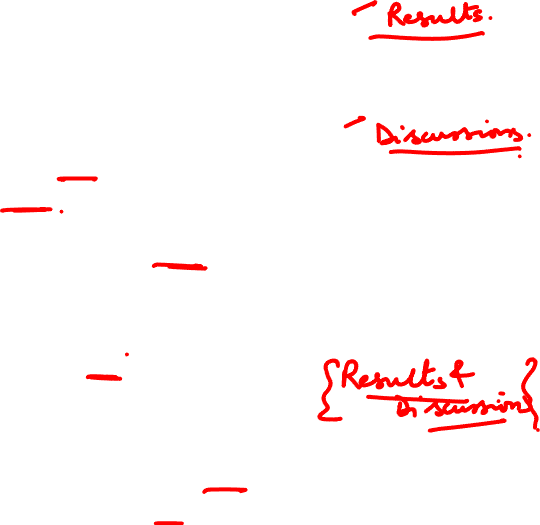 Results.
Discussions.
{Results &
Discussion}